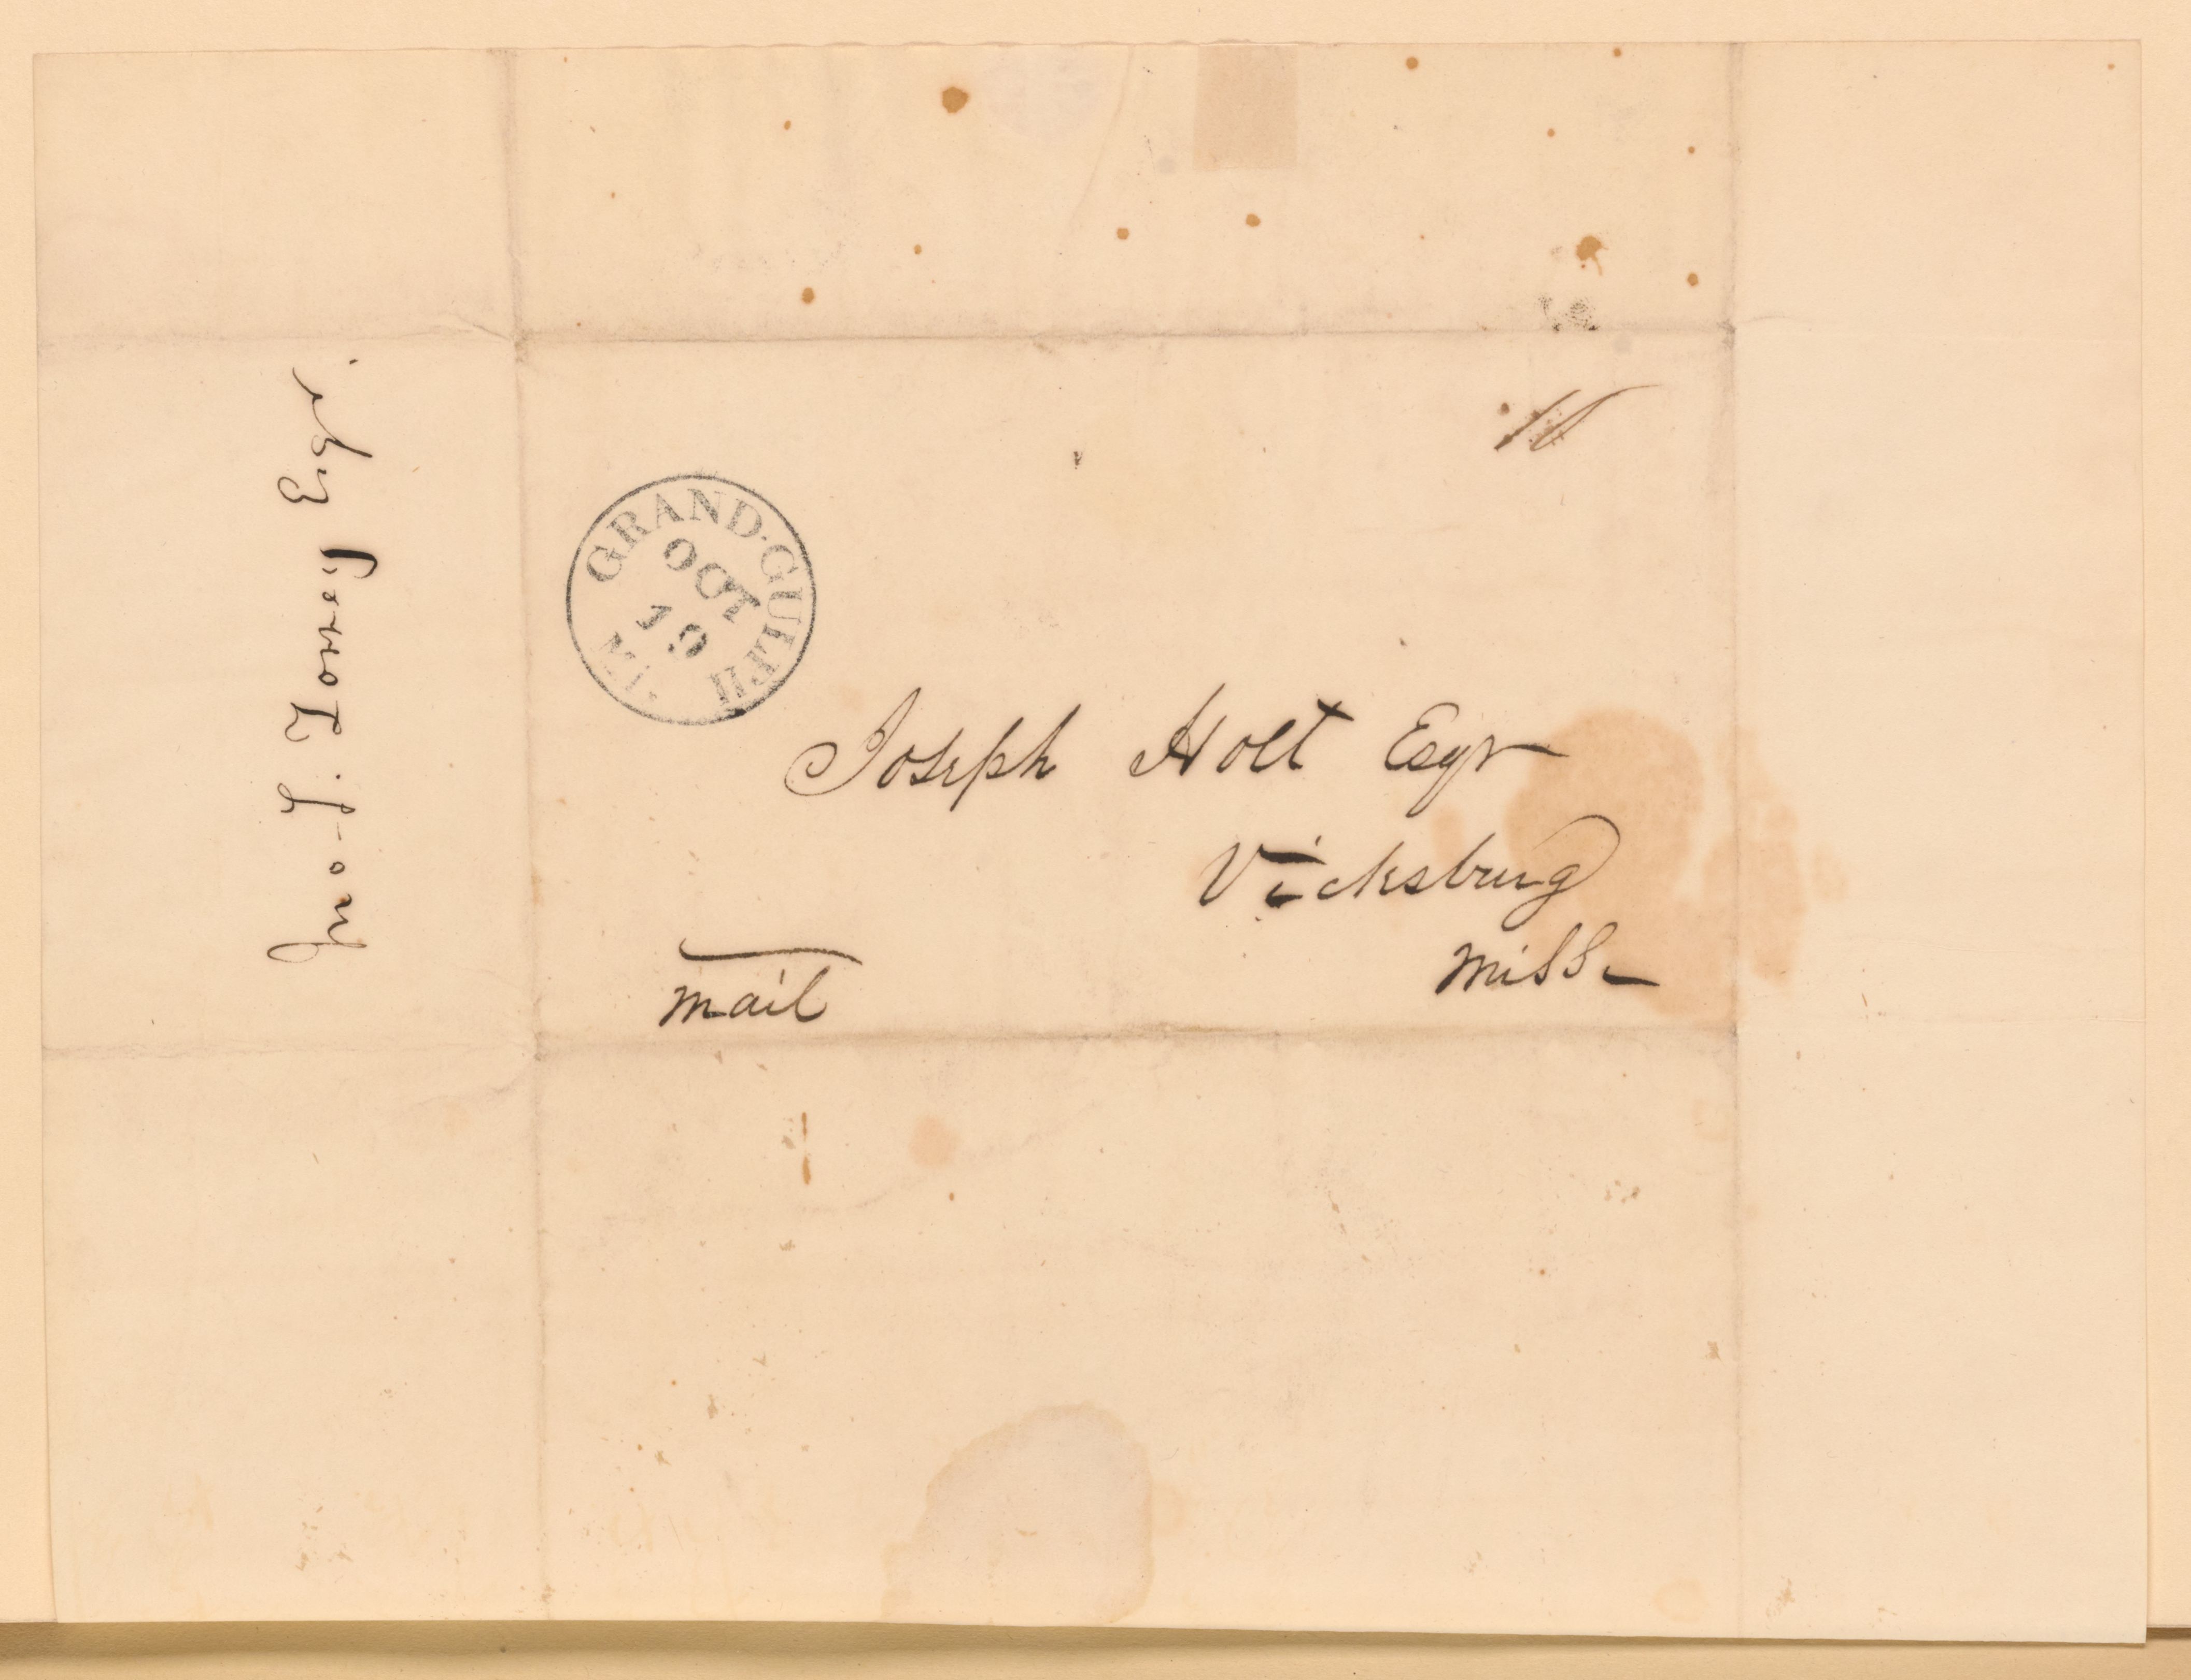 Jno. J. Torrey Esqr.
GRAND·GULPH
OCT
19
Mi.
10
Joseph Holt Esqr
Vicksburg
Miss.
mail